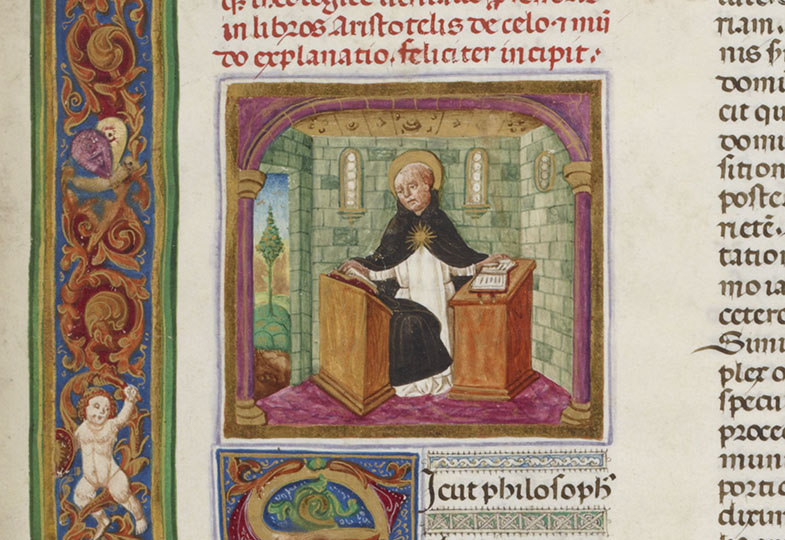 in libros Aristotelis de celo ⁊ mū
do explanatio. feliciter incipit.
icut philosoph
riam.
domi
cit qu
domu
sition
poste
rietē.
tation
mo ia
cetero
Simi
plex
specu
proce
muni
portio
dixim